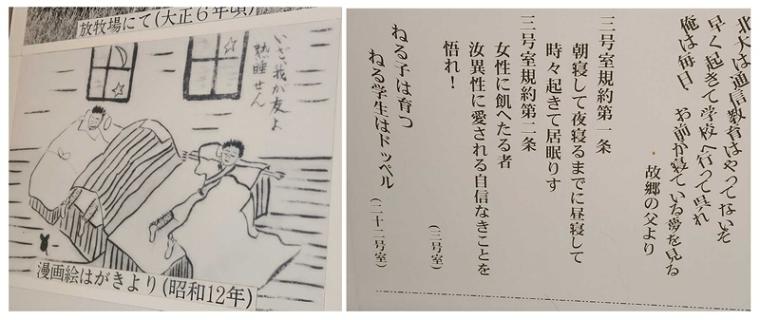 放牧場にて(大正6年頃)
いざ我が友よ
熟睡せん
漫画絵はがきより(昭和12年)
北大は通信教育はやってないぞ
早く起きて学校へ行って呉れ
俺は毎日、お前が寝ている夢を見る
故郷の父より
三号室規約第一条
朝寝して夜寝るまでに昼寝して
時々起きて居眠りす
三号室規約第二条
女性に飢へたる者
汝異性に愛される自信なきことを
悟れ!
(三号室)
ねる子は育つ
ねる学生はドッペル
(二十二号室)